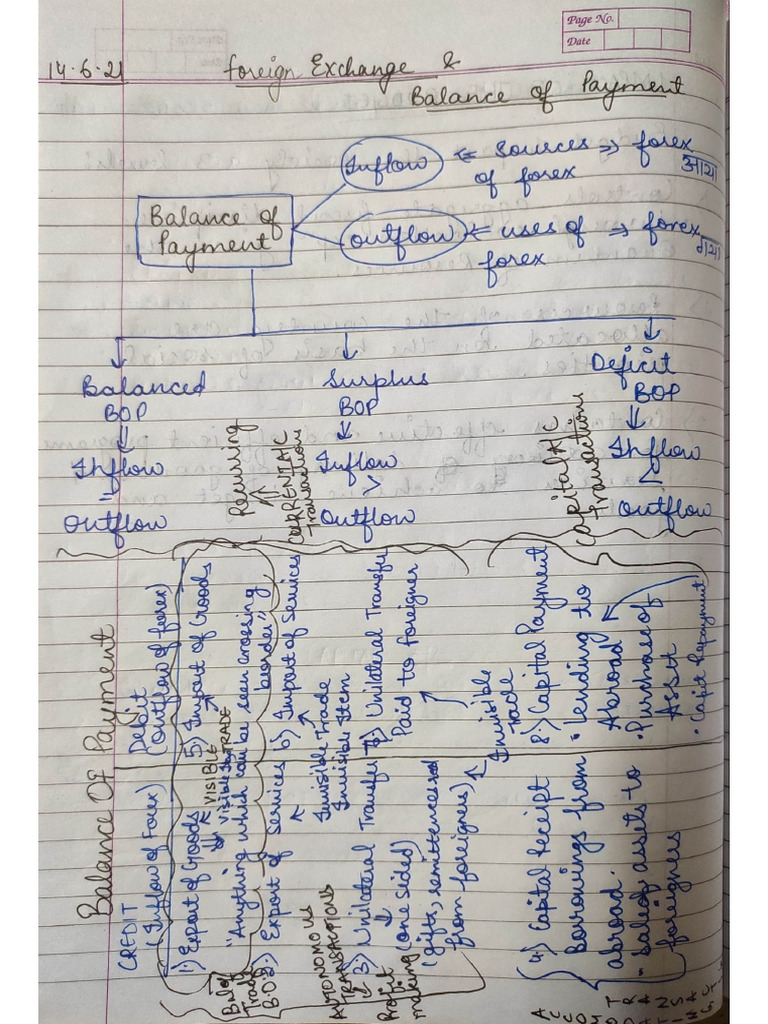 Page No.
Date
14.6.21
foreign Exchange &
Balance of Payment
Balance of
Payment
Inflow ⇐ sources ⇒ forex
of forex आया
outflow ⇐ uses of ⇒ forex
forex गया
Balanced
BOP
Inflow
"
Outflow
Surplus
BOP
Inflow
>
Outflow
Deficit
BOP
Inflow
<
Outflow
Recurring
CURRENT A/C
Transactions
Capital A/C
Transactions
Balance Of Payment
CREDIT
(Inflow of Forex)
Debit
(Outflow of forex)
1) Export of Goods
5) Import of Goods
VISIBLE
TRADE
"Anything which can be seen crossing
border"
Bal of
Trade
B.O.T.
2) Export of Services
6) Import of Services
Invisible Trade
Invisible Item
AUTONOMOUS
TRANSACTIONS
Profit
making
3) Unilateral Transfer
(one sided)
(gifts, remittences
from foreigners)
7) Unilateral Transfer
Paid to foreigner
Invisible
Trade
4) Capital Receipt
Borrowings from
abroad.
• Sale of assets to
foreigners
8) Capital Payment
• Lending to
Abroad
• Purchase of
Asset
• Capit Repayment